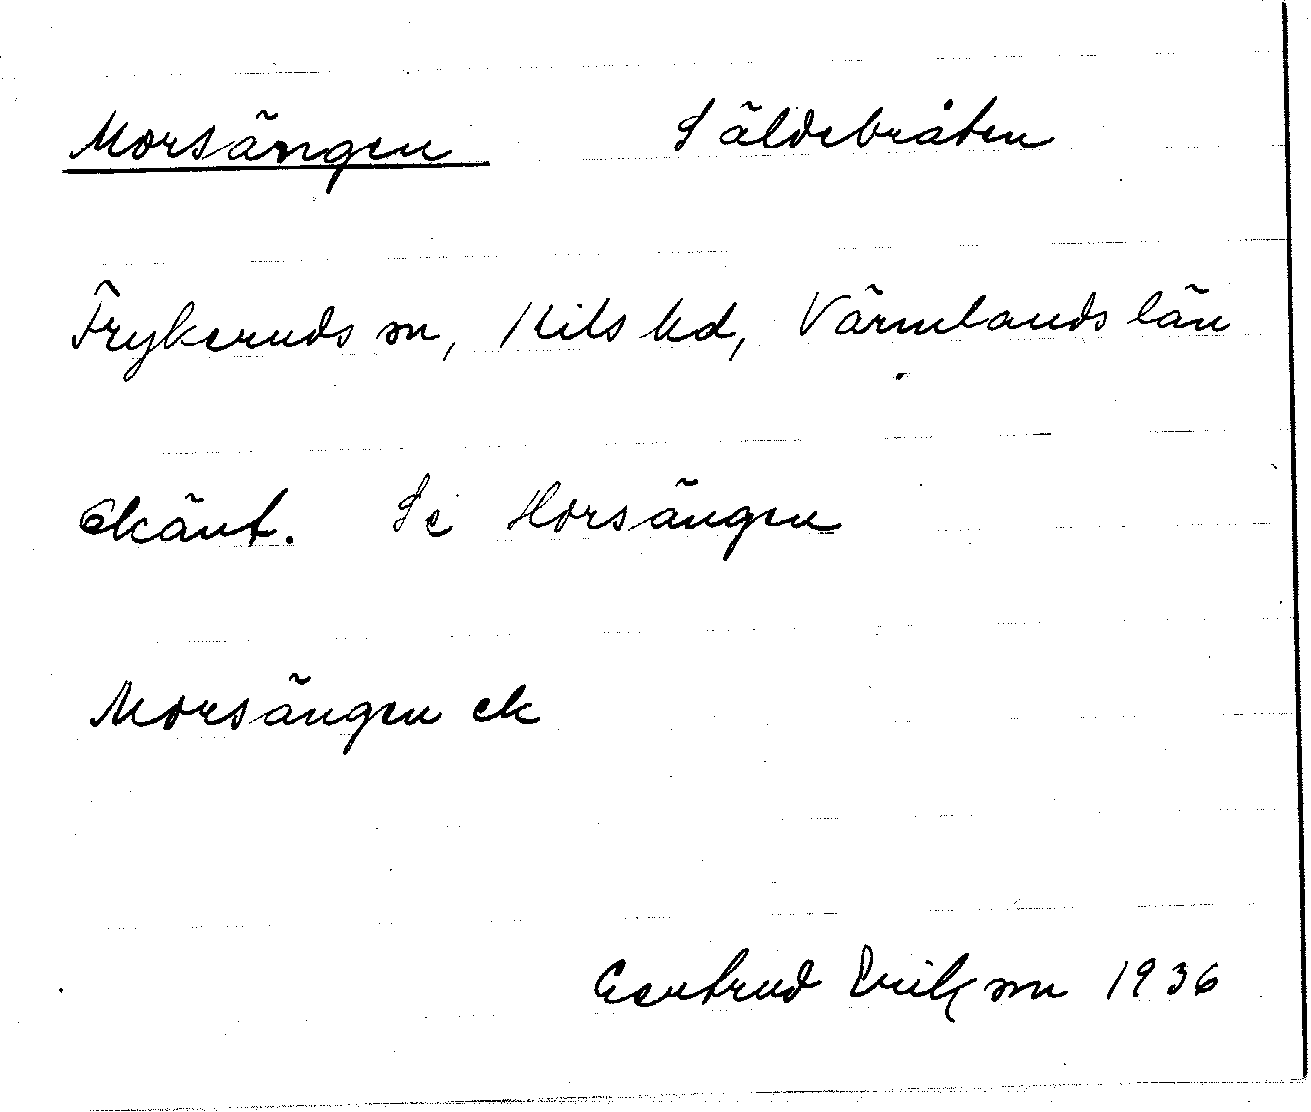 Morsängen Säldebråten
Frykeruds sn, Kils hd, Värmlands län
Okänt. Se Horsängen
Morsängen ek
Gertrud Eriksson 1936